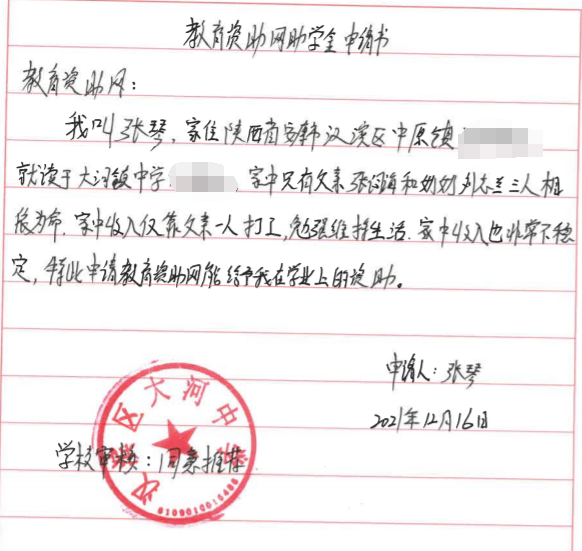 教育资助网助学金申请书
教育资助网：
我叫张琴，家住陕西省安韩汉滨区中原镇
就读于大河镇中学，家中只有父亲张海和奶奶刘志兰三人相
依为命．家中收入仅靠父亲一人打工，勉强维持生活．家中收入也非常不稳
定，特此申请教育资助网能给予我在学业上的资助。
申请人：张琴
2021年12月16日
汉滨区大河中学
学校审核：同意推荐
6109010015488